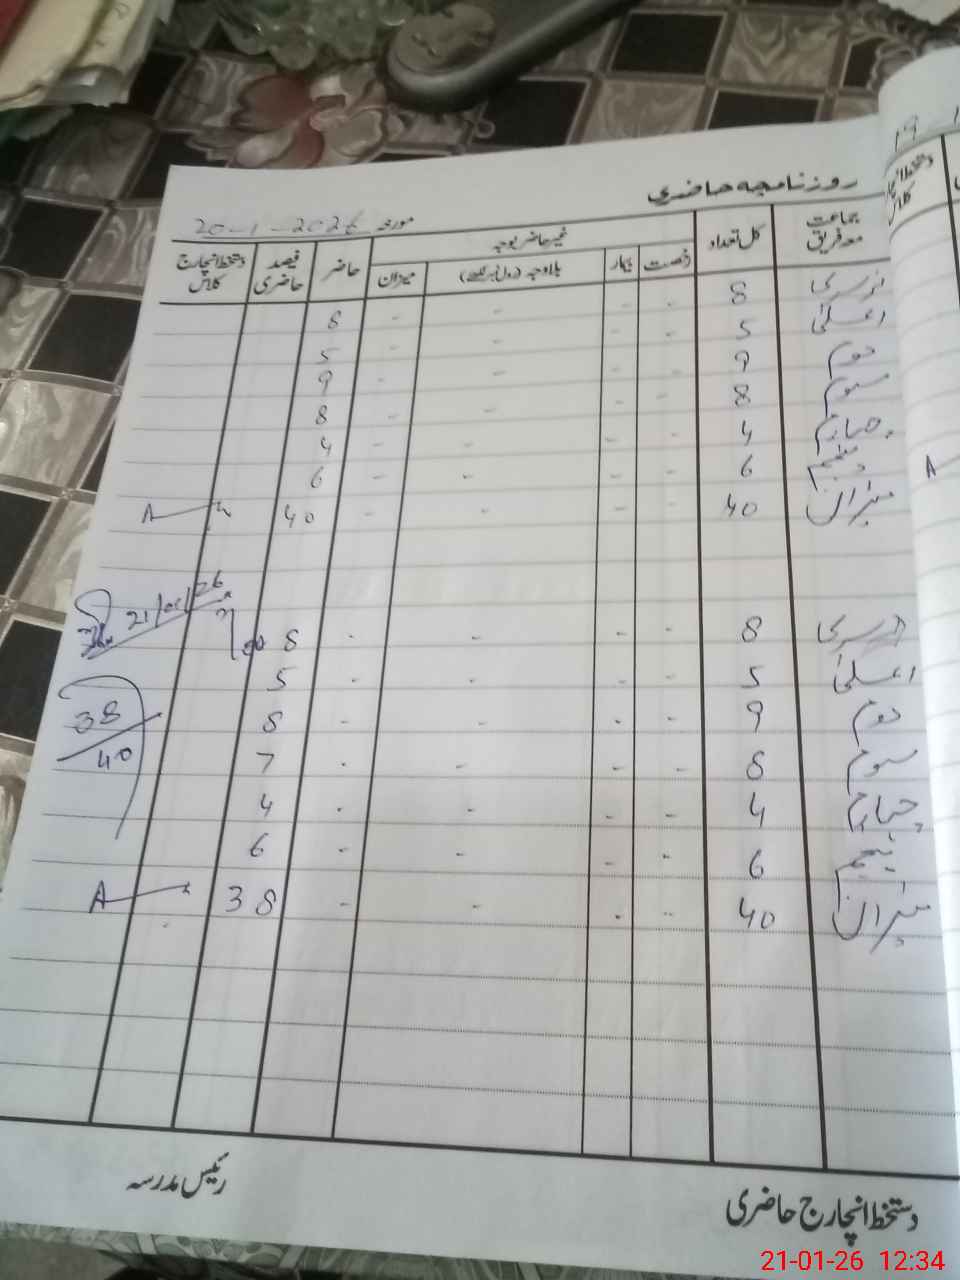 روزنامچہ حاضری
مورخہ 20-1-2026
جماعت معہ فریق کل تعداد غیر حاضر بوجہ حاضر فیصد حاضری دستخط انچارج کلاس
رخصت بیمار بلاوجہ (رول نمبر لکھیے) میزان
نرسری 8 - - - - 8
اعلیٰ 5 - - - - 5
دوم 9 - - - - 9
سوم 8 - - - - 8
چہارم 4 - - - - 4
پنجم 6 - - - - 6
میزان 40 - - - - 40 A
21/01/26
نرسری 8 - - - - 8
اعلیٰ 5 - - - - 5
دوم 9 - - - - 8
سوم 8 - - - - 7
چہارم 4 - - - - 4
پنجم 6 - - - - 6
میزان 40 - - - - 38 A
38
40
دستخط انچارج حاضری
رئیس مدرسہ
19
دستخط انچارج کلاس
A
21-01-26 12:34